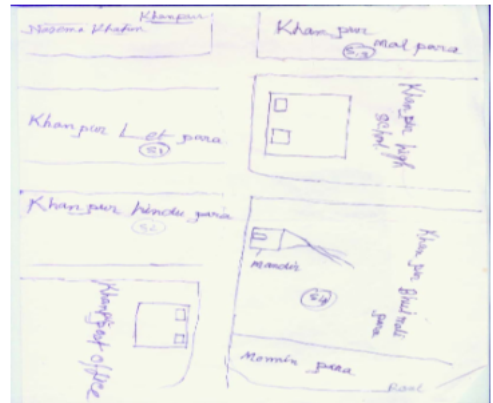 Khanpur
Nasema Khatun
Khan pur
mal para
S3
Khan pur high
school
Khan pur Let para
S1
Khan pur hindu para
S2
Mandir
S4
Khan pur
para
Khanpur
Post office
Momin para